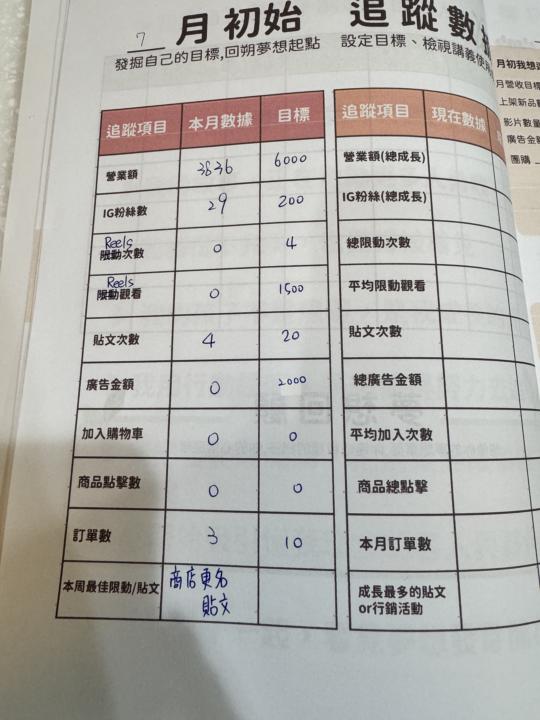 7 月初始 追蹤數
發掘自己的目標,回朔夢想起點 設定目標、檢視講義使
追蹤項目 本月數據 目標
營業額 3836 6000
IG粉絲數 29 200
Reels
限動次數 0 4
Reels
限動觀看 0 1500
貼文次數 4 20
廣告金額 0 2000
加入購物車 0 0
商品點擊數 0 0
訂單數 3 10
本周最佳限動/貼文 商店更名
貼文
追蹤項目 現在數據
營業額(總成長)
IG粉絲(總成長)
總限動次數
平均限動觀看
貼文次數
總廣告金額
平均加入次數
商品總點擊
本月訂單數
成長最多的貼文
or行銷活動
月初我想
月營收目標
上架新品
影片數量
廣告金
團購